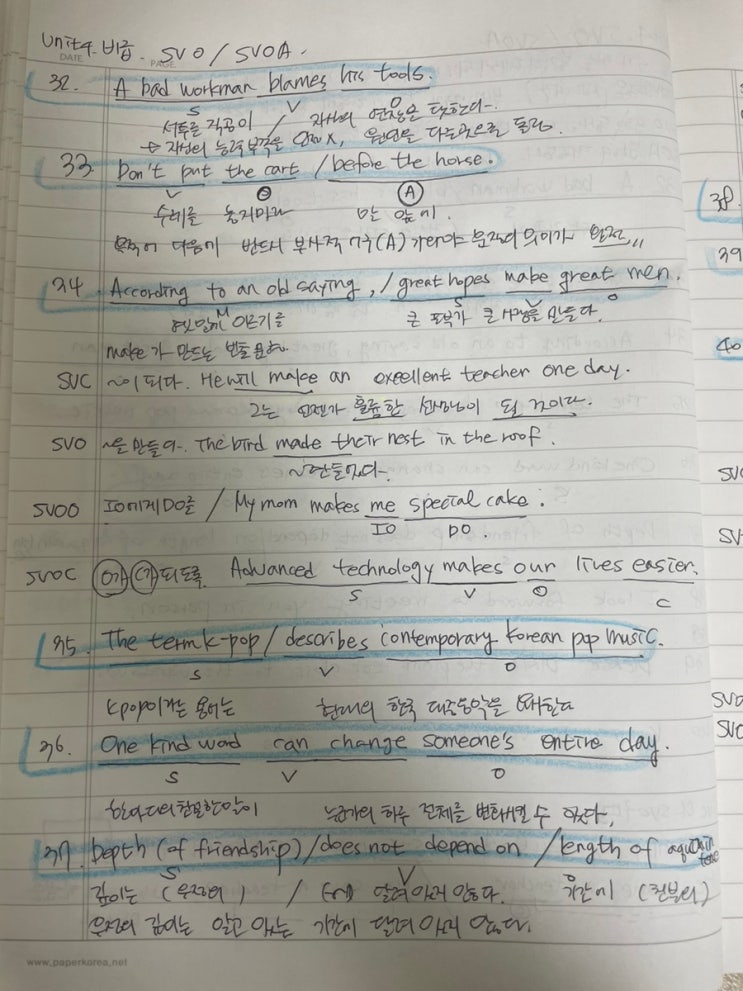 Unit4. 비급. SVO / SVOA.
DATE PAGE
32. A bad workman blames his tools.
S V O
서투른 직공이 / 자신의 연장을 탓한다.
→ 자신의 능력부족을 인정X, 원인을 다른곳으로 돌림.
33. Don't put the cart / before the horse.
V O A
수레를 놓지마라 말 앞에.
목적어 다음에 반드시 부사적 어구(A) 가 와야 문장의 의미가 완전
34. According to an old saying, / great hopes make great men.
M S V O
옛 말에 이르기를 큰 포부가 큰 사람을 만든다.
make 가 만드는
SVC ~이 되다. He will make an excellent teacher one day.
그는 언젠가 훌륭한 선생님이 될 것이다.
SVO ~을 만들다. The bird made their nest in the roof.
~만들었다.
SVOO IO에게 DO를 / My mom makes me special cake.
IO DO.
SVOC O가 C가 되도록 Advanced technology makes our lives easier.
S V O C
35. The term k-pop / describes contemporary korean pop music.
S V O
kpop이라는 용어는 현대의 한국 대중음악을 묘사한다
36. One kind word can change someone's entire day.
S V O
한마디의 친절한 말이 누군가의 하루 전체를 변화시킬 수 있다.
37. Depth (of friendship) / does not depend on / length of
S V O
깊이는 (우정의) / 달려 있지 않다. 기간에
우정의 깊이는 알고 있는 기간에 달려 있지 않다.
www.paperkorea.net
38.
39
40
SVO